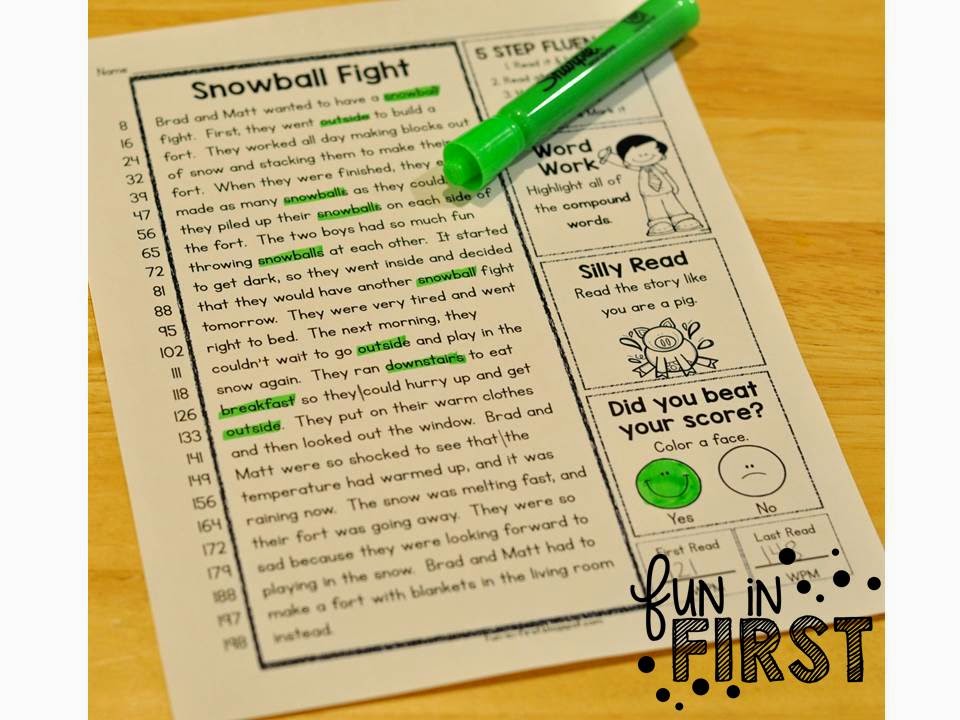 Name
Snowball Fight
8 Brad and Matt wanted to have a snowball
16 fight. First, they went outside to build a
24 fort. They worked all day making blocks out
32 of snow and stacking them to make their
39 fort. When they were finished, they
47 made as many snowballs as they could.
56 they piled up their snowballs on each side of
65 the fort. The two boys had so much fun
72 throwing snowballs at each other. It started
81 to get dark, so they went inside and decided
88 that they would have another snowball fight
95 tomorrow. They were very tired and went
102 right to bed. The next morning, they
111 couldn't wait to go outside and play in the
118 snow again. They ran downstairs to eat
126 breakfast so they could hurry up and get
133 outside. They put on their warm clothes
141 and then looked out the window. Brad and
149 Matt were so shocked to see that the
156 temperature had warmed up, and it was
164 raining now. The snow was melting fast, and
172 their fort was going away. They were so
179 sad because they were looking forward to
188 playing in the snow. Brad and Matt had to
197 make a fort with blankets in the living room
198 instead.
5 STEP
1. Read it
2. Read
3.
Mark it
Sharpie
Word
Work
Highlight all of
the compound
words.
Silly Read
Read the story like
you are a pig.
Did you beat
your score?
Color a face.
Yes No
First Read Last Read
WPM
Fun in
FIRST